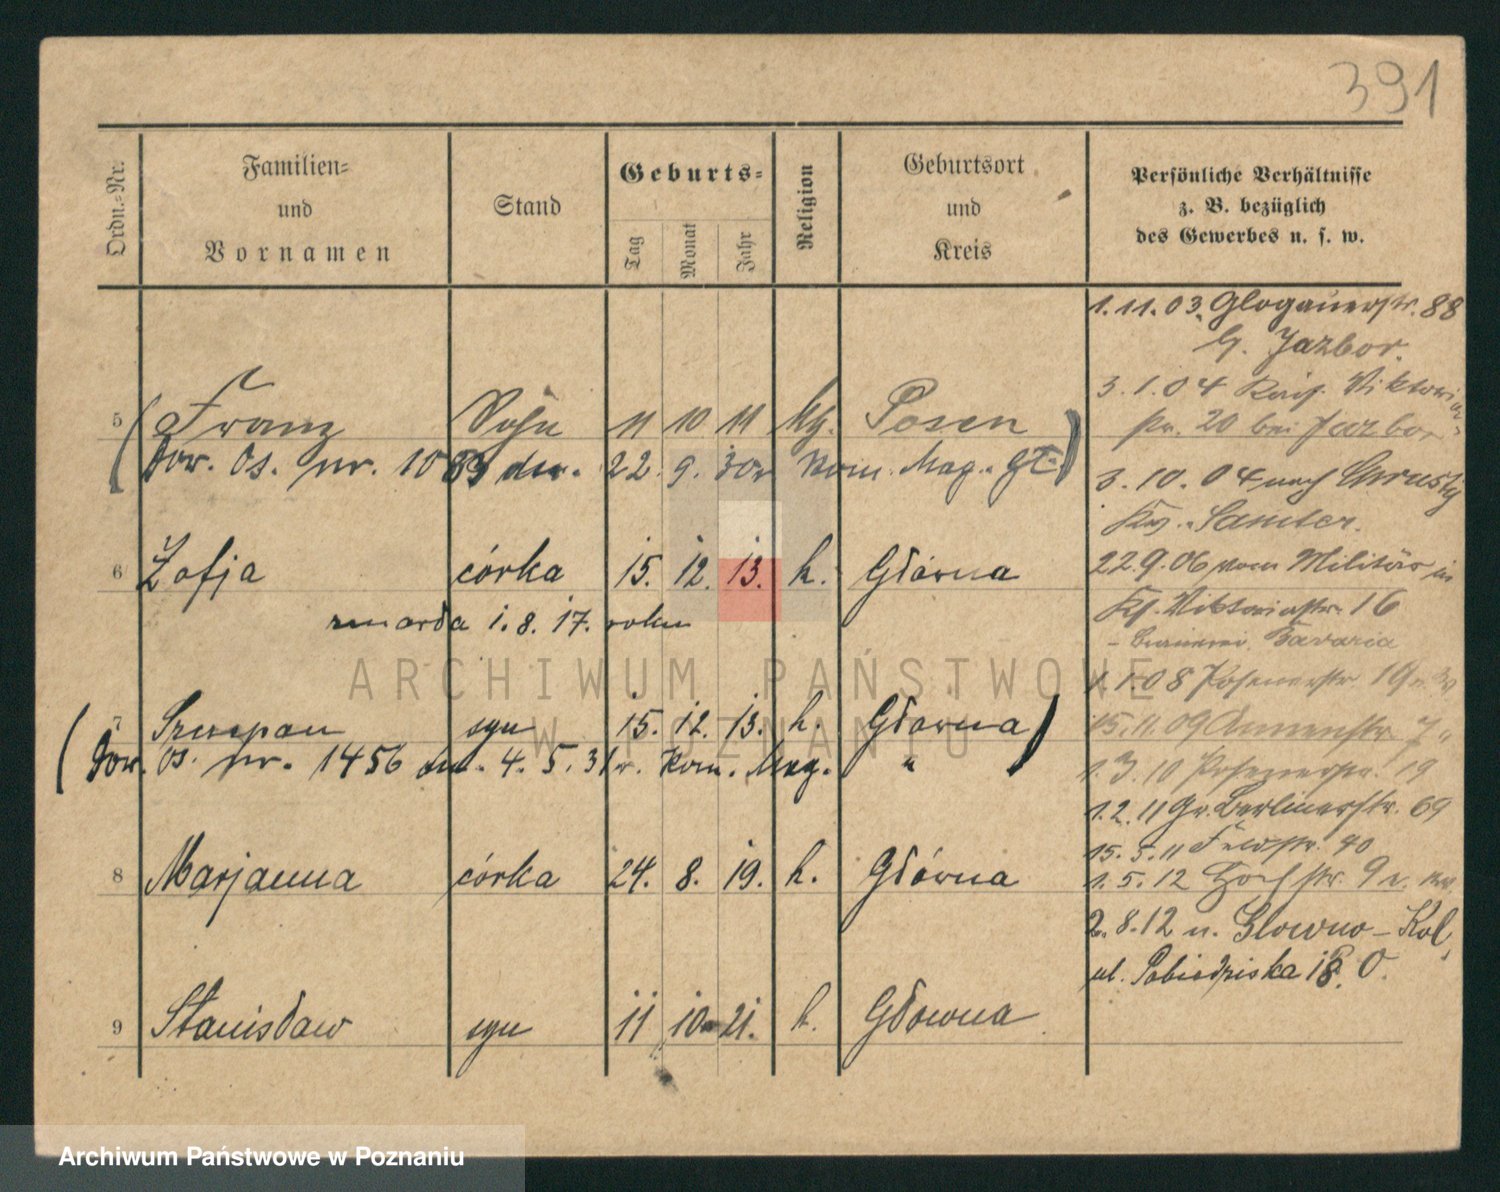 391
Ordn.-Nr.
Familien-
und
Vornamen
Stand
Geburts-
Tag
Monat
Jahr
Religion
Geburtsort
und
Kreis
Persönliche Verhältnisse
z. B. bezüglich
des Gewerbes u. s. w.
5 Franz Sohn 11 10 11 kg. Posen
Dow. Os. nr. 1083 dn. 22. 9. 30r Kom. Mag. Gł.
6 Zofja córka 15. 12. 13. k. Główna
zmarła 1. 8. 17. roku
7 Szczepan syn 15. 12. 13. k. Główna
Dow. Os. nr. 1456 dn. 4. 5. 31r. Kom. Mag. "
8 Marjanna córka 24. 8. 19. k. Główna
9 Stanisław syn 11 10 21. k. Główna
1.11.03. Glogauerstr. 88
b. Jazbor.
3.1.04 Viktoria-
str. 20 bei Jazbor
3.10.04 nach
Krs. Samter.
22.9.06 vom Militär in
Viktoriastr. 16
Bavaria
1.1.08 Posenerstr. 19
15.11.09 Annenstr. 7
1.3.10 Posenerstr. 19
1.2.11 Gr. Berlinerstr. 69
15.5.11 Feldstr. 40
1.5.12 Hochstr. 9
2.8.12 n. Glowno-Kol,
ul. Pobiedziska 18. O.
ARCHIWUM PAŃSTWOWE
W POZNANIU
Archiwum Państwowe w Poznaniu